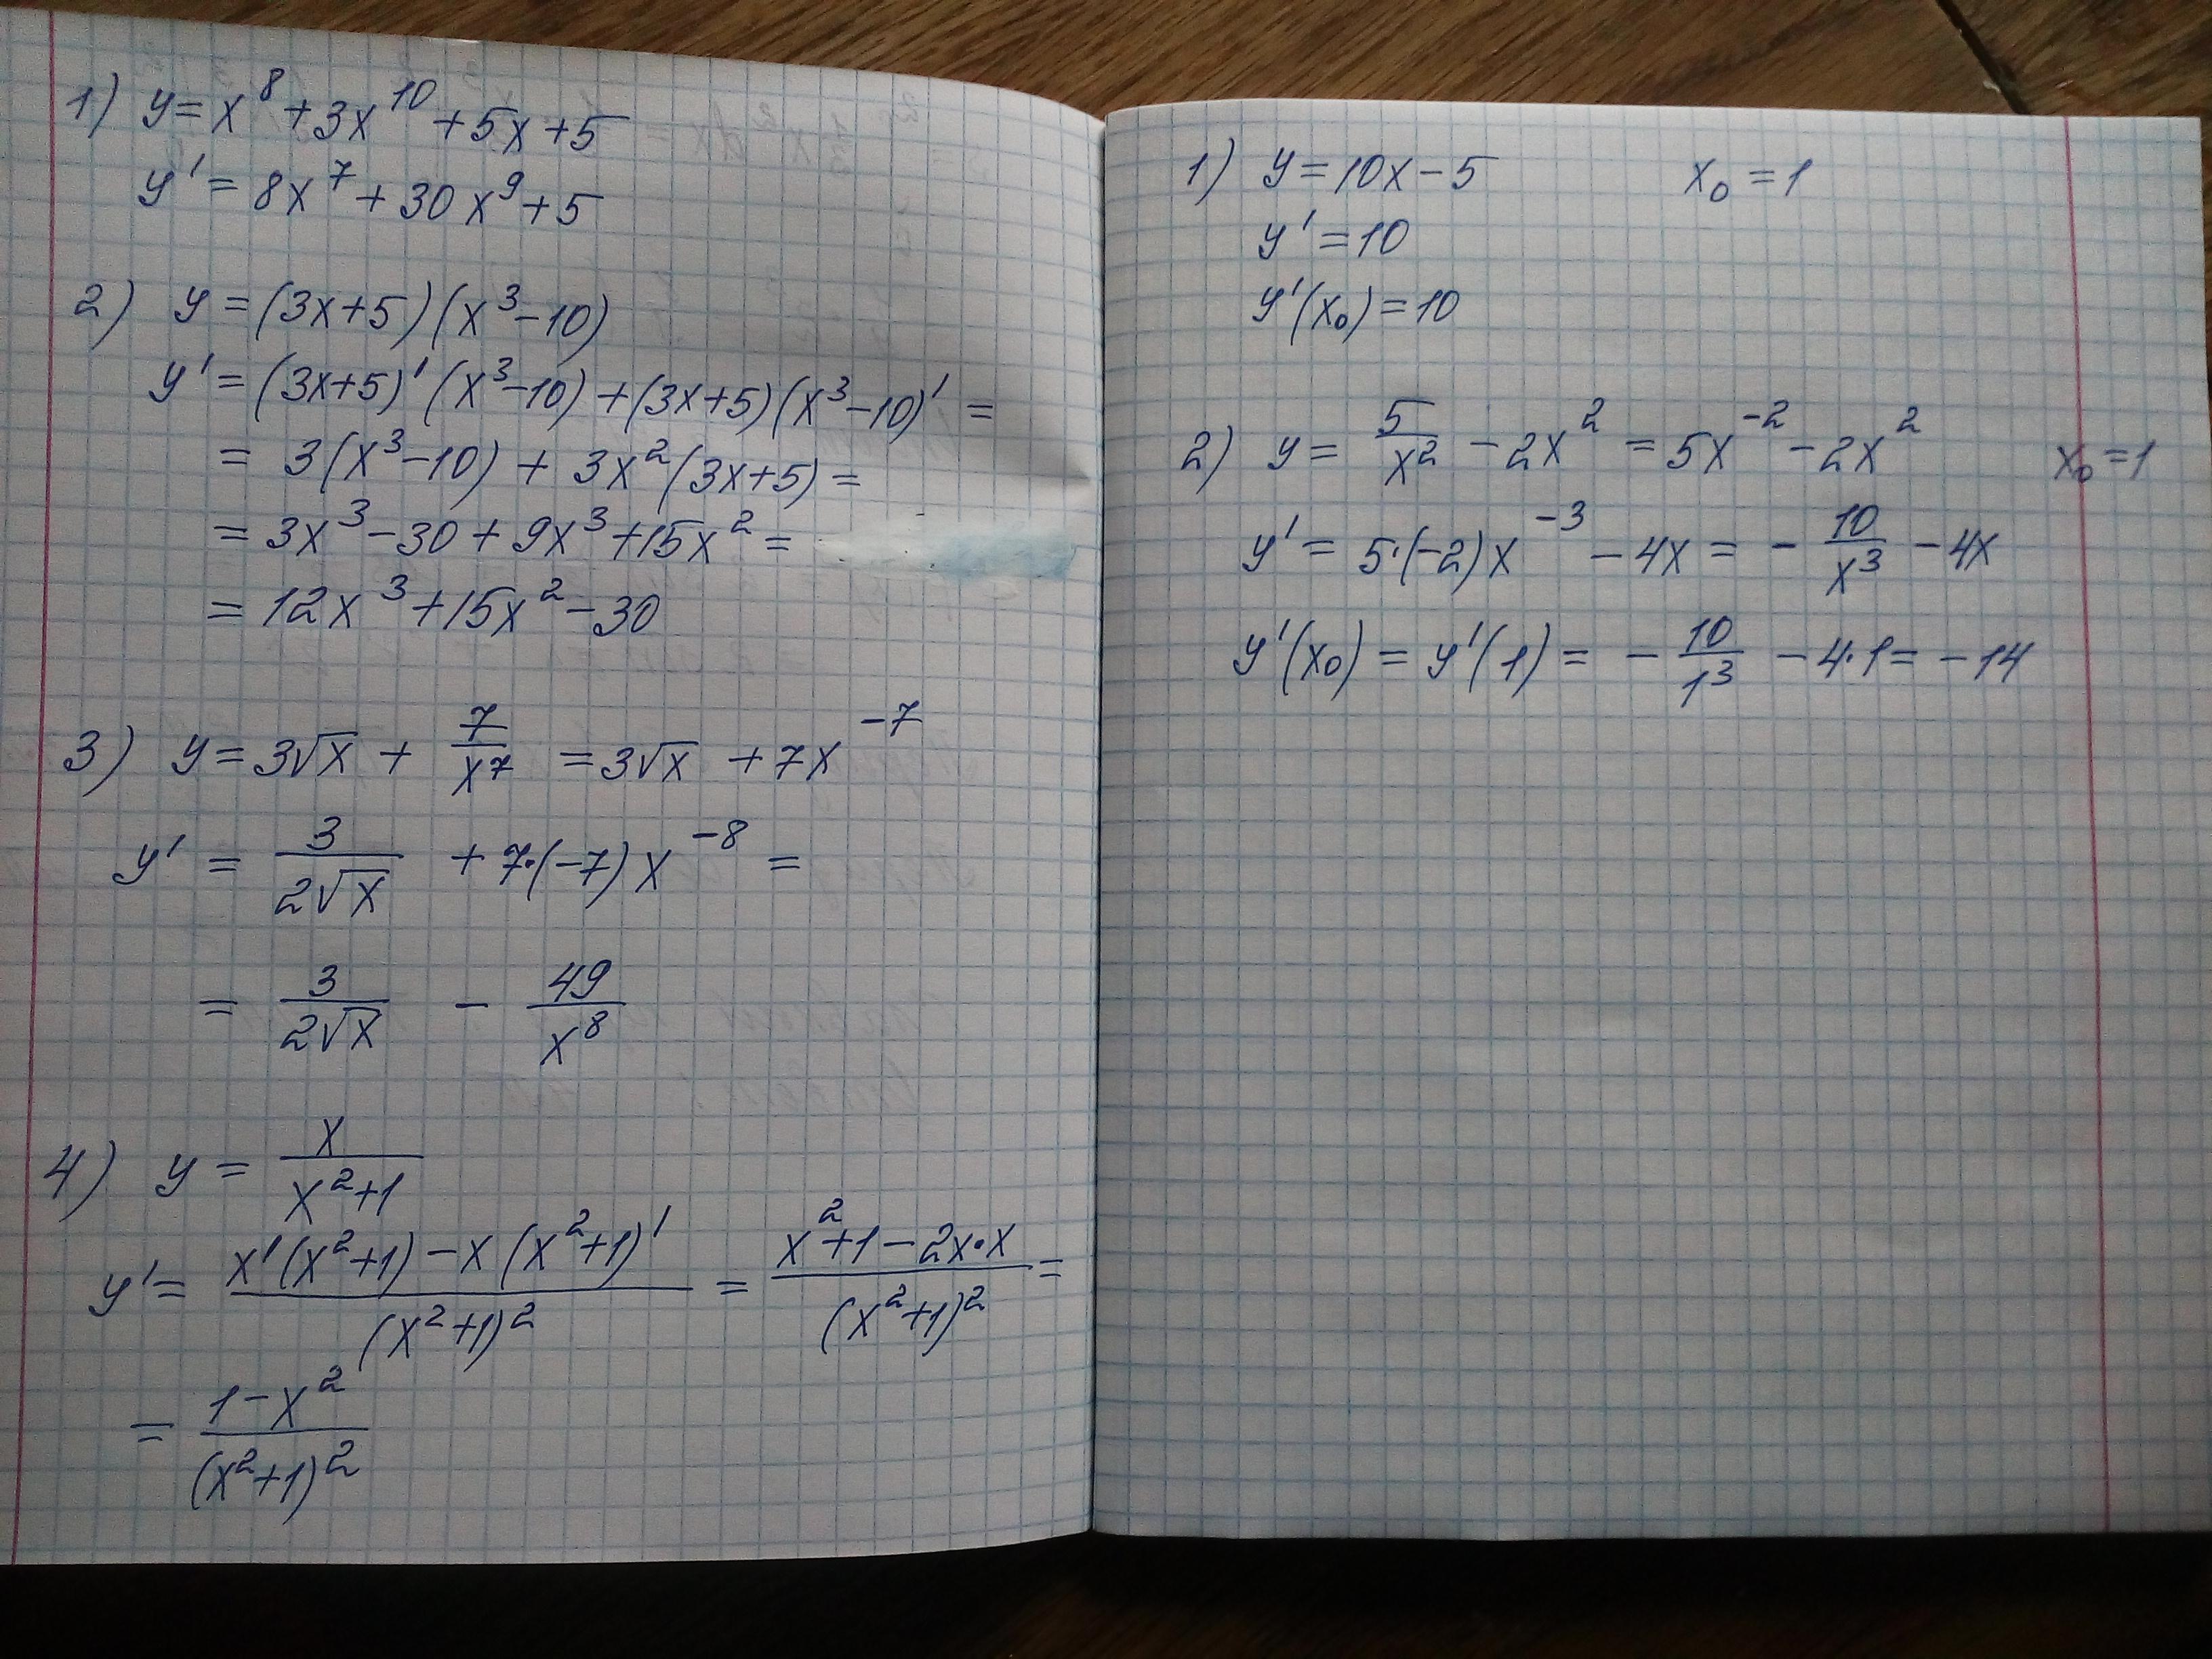 1) y = x⁸ + 3x¹⁰ + 5x + 5
y' = 8x⁷ + 30x⁹ + 5
2) y = (3x+5)(x³-10)
y' = (3x+5)'(x³-10) + (3x+5)(x³-10)' =
= 3(x³-10) + 3x²(3x+5) =
= 3x³ - 30 + 9x³ + 15x² =
= 12x³ + 15x² - 30
3) y = 3√x + 7/x⁷ = 3√x + 7x⁻⁷
y' = 3/(2√x) + 7·(-7)x⁻⁸ =
= 3/(2√x) - 49/x⁸
4) y = x/(x²+1)
y' = (x'(x²+1) - x(x²+1)')/(x²+1)² = (x²+1-2x·x)/(x²+1)² =
= (1-x²)/(x²+1)²
1) y = 10x - 5 x₀ = 1
y' = 10
y'(x₀) = 10
2) y = 5/x² - 2x² = 5x⁻² - 2x² x₀ = 1
y' = 5·(-2)x⁻³ - 4x = -10/x³ - 4x
y'(x₀) = y'(1) = -10/1³ - 4·1 = -14